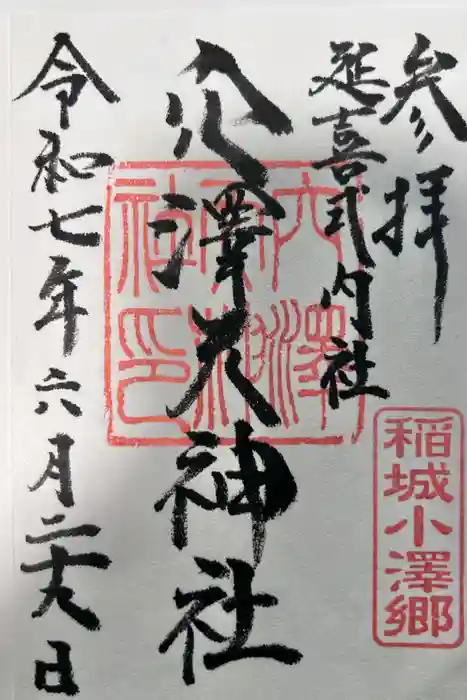 参拝
延喜式内社
穴澤天神社
令和七年六月二十九日
穴澤天神社印
稲城小澤郷